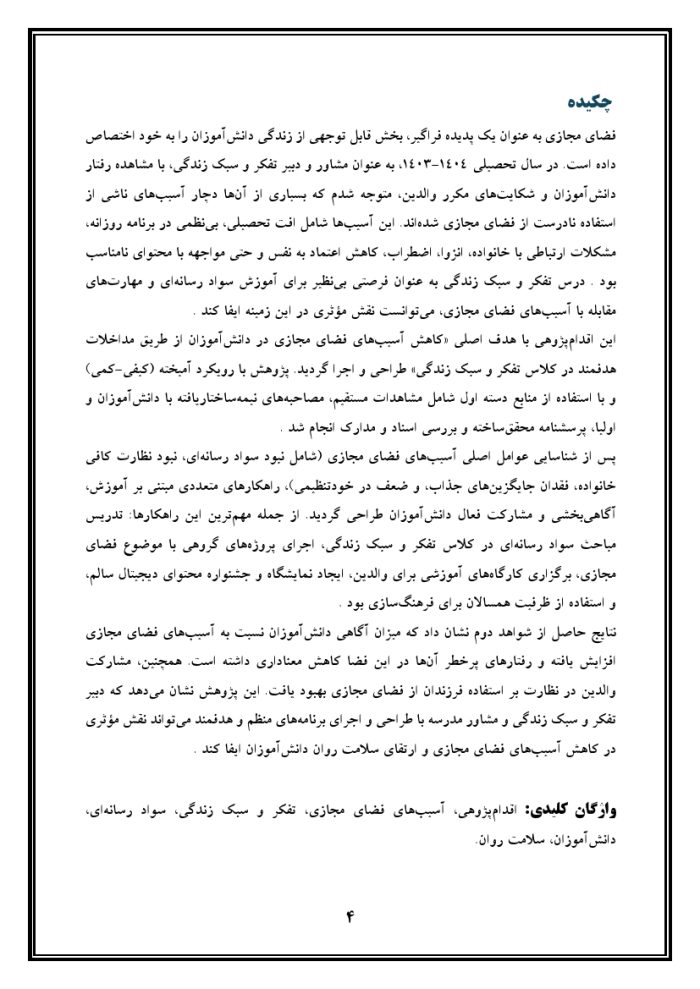 چکیده
فضای مجازی به عنوان یک پدیده فراگیر، بخش قابل توجهی از زندگی دانش‌آموزان را به خود اختصاص
داده است. در سال تحصیلی ۱۴۰۴-۱۴۰۳، به عنوان مشاور و دبیر تفکر و سبک زندگی، با مشاهده رفتار
دانش‌آموزان و شکایت‌های مکرر والدین، متوجه شدم که بسیاری از آن‌ها دچار آسیب‌های ناشی از
استفاده نادرست از فضای مجازی شده‌اند. این آسیب‌ها شامل افت تحصیلی، بی‌نظمی در برنامه روزانه،
مشکلات ارتباطی با خانواده، انزوا، اضطراب، کاهش اعتماد به نفس و حتی مواجهه با محتوای نامناسب
بود . درس تفکر و سبک زندگی به عنوان فرصتی بی‌نظیر برای آموزش سواد رسانه‌ای و مهارت‌های
مقابله با آسیب‌های فضای مجازی، می‌توانست نقش مؤثری در این زمینه ایفا کند .
این اقدام‌پژوهی با هدف اصلی «کاهش آسیب‌های فضای مجازی در دانش‌آموزان از طریق مداخلات
هدفمند در کلاس تفکر و سبک زندگی» طراحی و اجرا گردید. پژوهش با رویکرد آمیخته (کیفی-کمی)
و با استفاده از منابع دسته اول شامل مشاهدات مستقیم، مصاحبه‌های نیمه‌ساختاریافته با دانش‌آموزان و
اولیا، پرسشنامه محقق‌ساخته و بررسی اسناد و مدارک انجام شد .
پس از شناسایی عوامل اصلی آسیب‌های فضای مجازی (شامل نبود سواد رسانه‌ای، نبود نظارت کافی
خانواده، فقدان جایگزین‌های جذاب، و ضعف در خودتنظیمی)، راهکارهای متعددی مبتنی بر آموزش،
آگاهی‌بخشی و مشارکت فعال دانش‌آموزان طراحی گردید. از جمله مهم‌ترین این راهکارها: تدریس
مباحث سواد رسانه‌ای در کلاس تفکر و سبک زندگی، اجرای پروژه‌های گروهی با موضوع فضای
مجازی، برگزاری کارگاه‌های آموزشی برای والدین، ایجاد نمایشگاه و جشنواره محتوای دیجیتال سالم،
و استفاده از ظرفیت همسالان برای فرهنگ‌سازی بود .
نتایج حاصل از شواهد دوم نشان داد که میزان آگاهی دانش‌آموزان نسبت به آسیب‌های فضای مجازی
افزایش یافته و رفتارهای پرخطر آن‌ها در این فضا کاهش معناداری داشته است. همچنین، مشارکت
والدین در نظارت بر استفاده فرزندان از فضای مجازی بهبود یافت. این پژوهش نشان می‌دهد که دبیر
تفکر و سبک زندگی و مشاور مدرسه با طراحی و اجرای برنامه‌های منظم و هدفمند می‌تواند نقش مؤثری
در کاهش آسیب‌های فضای مجازی و ارتقای سلامت روان دانش‌آموزان ایفا کند .
واژگان کلیدی: اقدام‌پژوهی، آسیب‌های فضای مجازی، تفکر و سبک زندگی، سواد رسانه‌ای،
دانش‌آموزان، سلامت روان.
۴